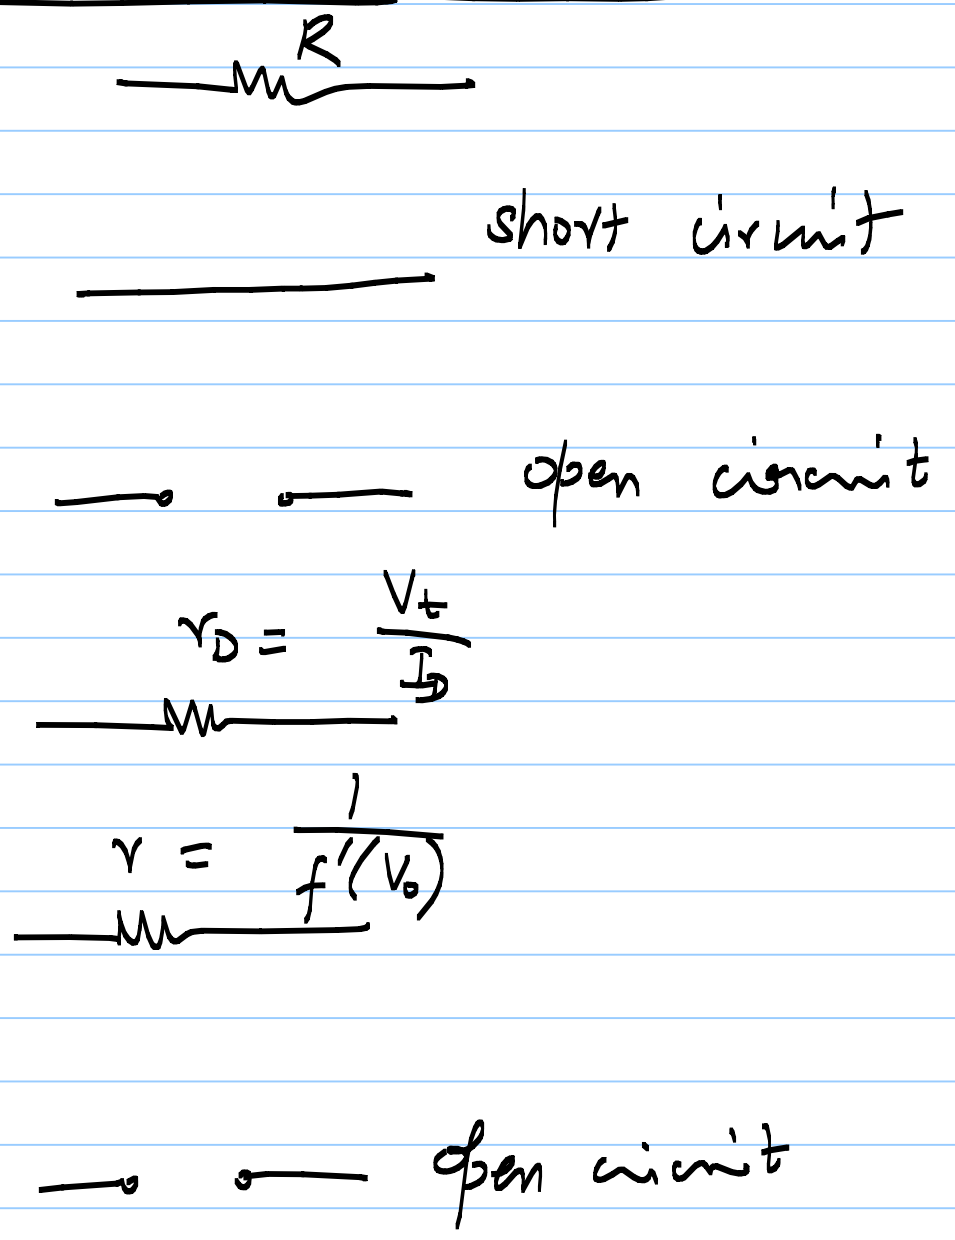 R
short circuit
open circuit
r_D = V_t / I_D
r = 1 / f'(V_0)
open circuit